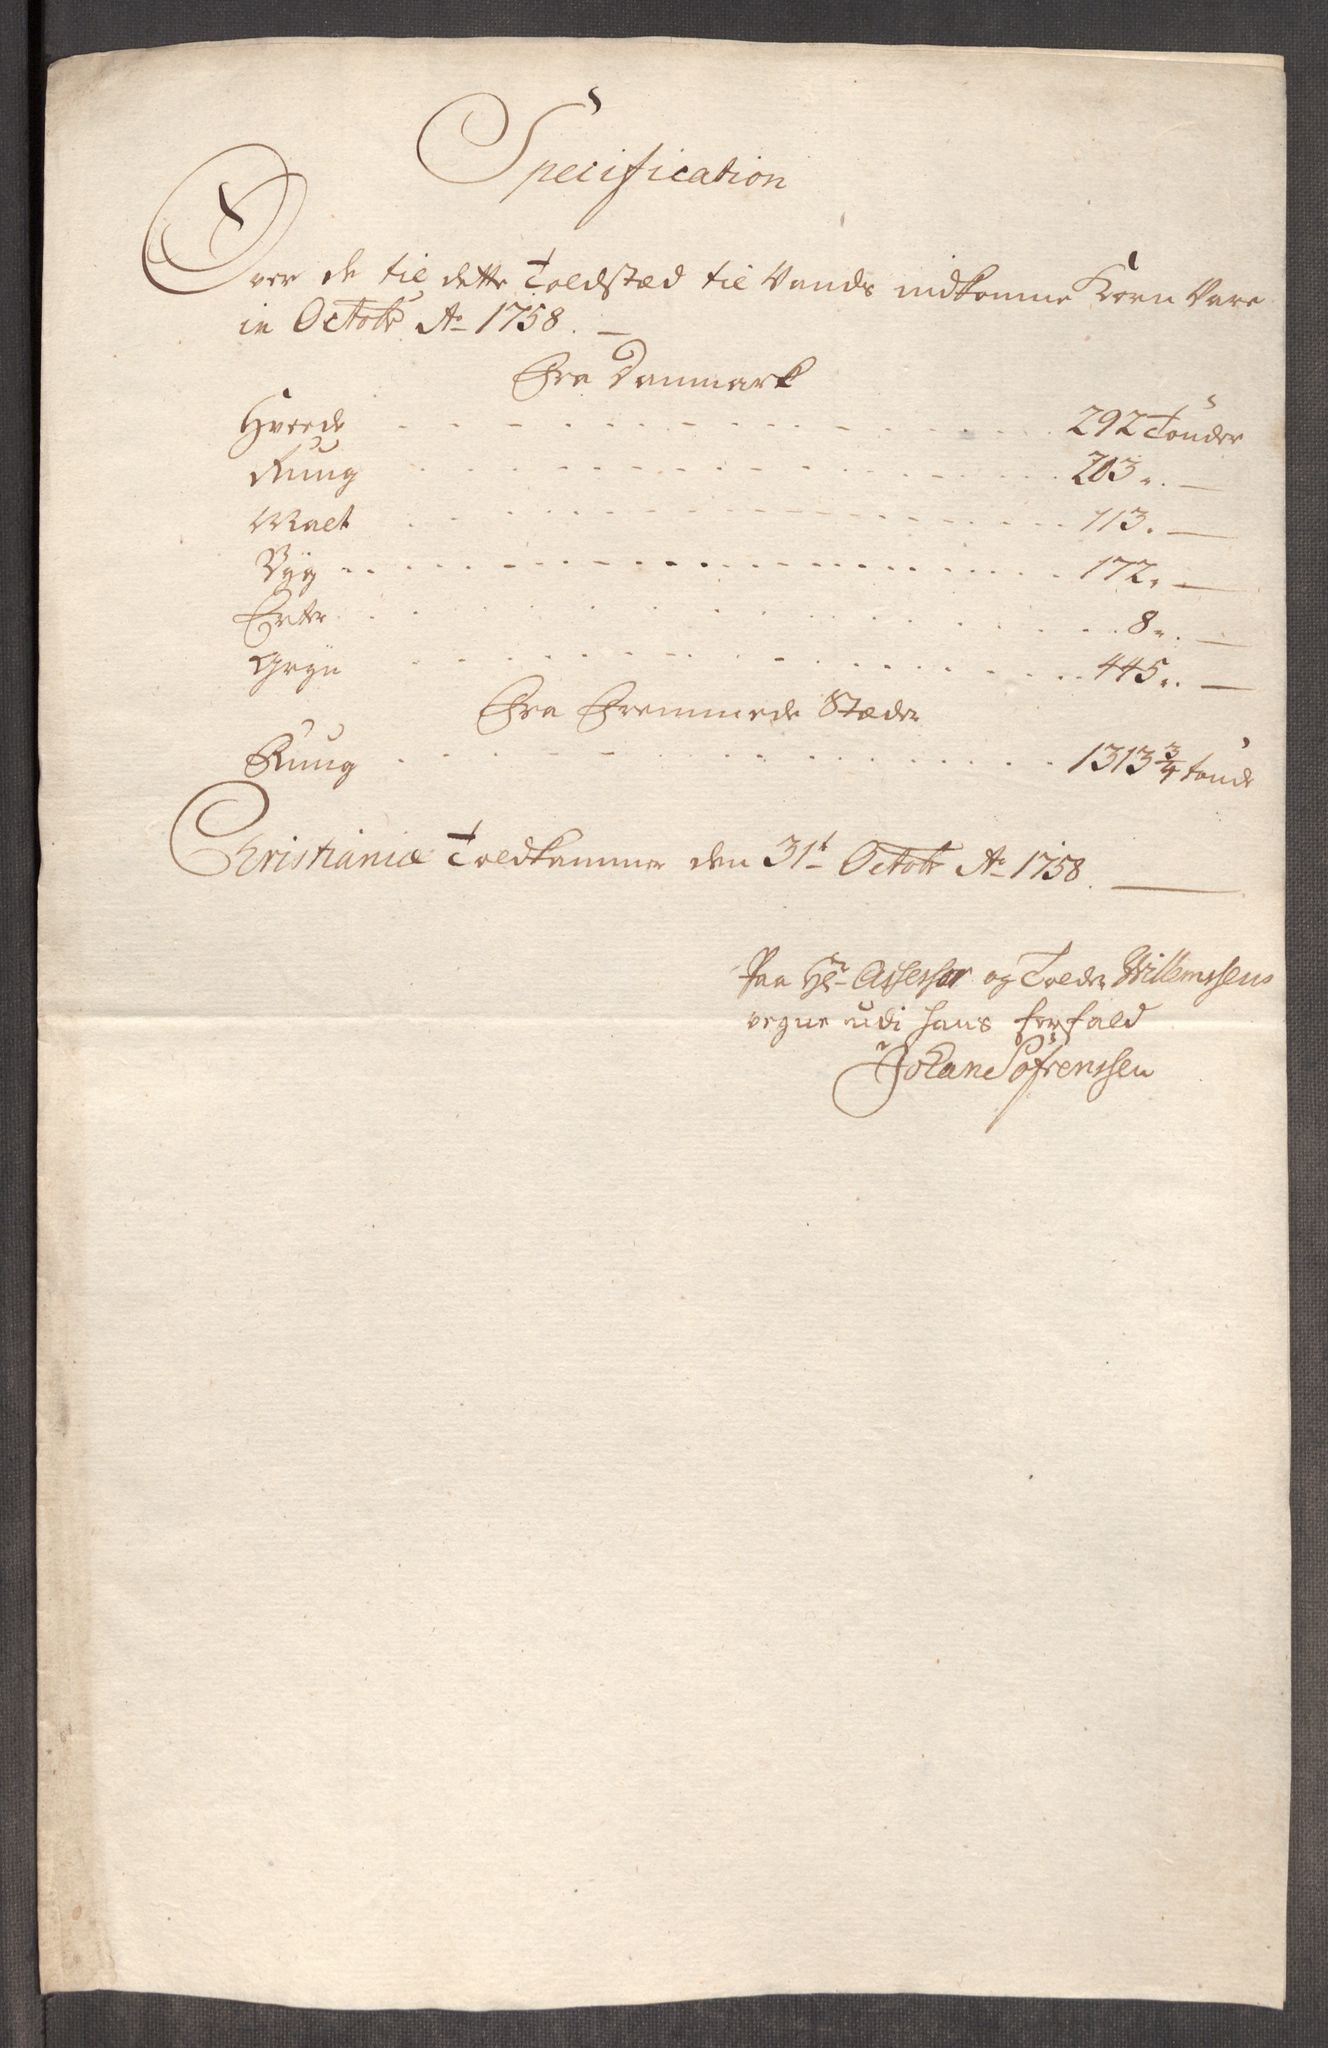 Specification
Over de til dette Toldstæd til Vands indkomne Korn Vare
in Octobr Ao 1758.
Fra Danmark
Hvede 292 Tønder
Rug 203 " —
Malt 113 " —
Byg 172 " —
Erter 8 " —
Gryn 445 " —
Fra Fremmede Stæder
Rug 1313 3/4 tønde
Christiania Toldkammer den 31t Octobr Ao 1758.
Paa Hr Assessor og Tolder Willemssens
vegne udi hans forfald
Johan Søfrenssen